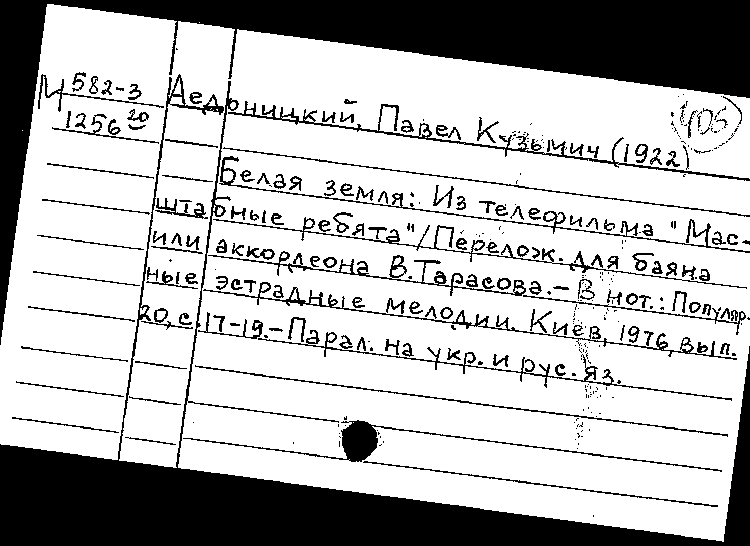 М 582-3
1256 20
405
Аедоницкий, Павел Кузьмич (1922)
Белая земля: Из телефильма "Мас-
штабные ребята"/Перелож. для баяна
или аккордеона В. Тарасова.- В нот.: Популяр-
ные эстрадные мелодии. Киев, 1976, вып.
20, с. 17-19.- Парал. на укр. и рус. яз.